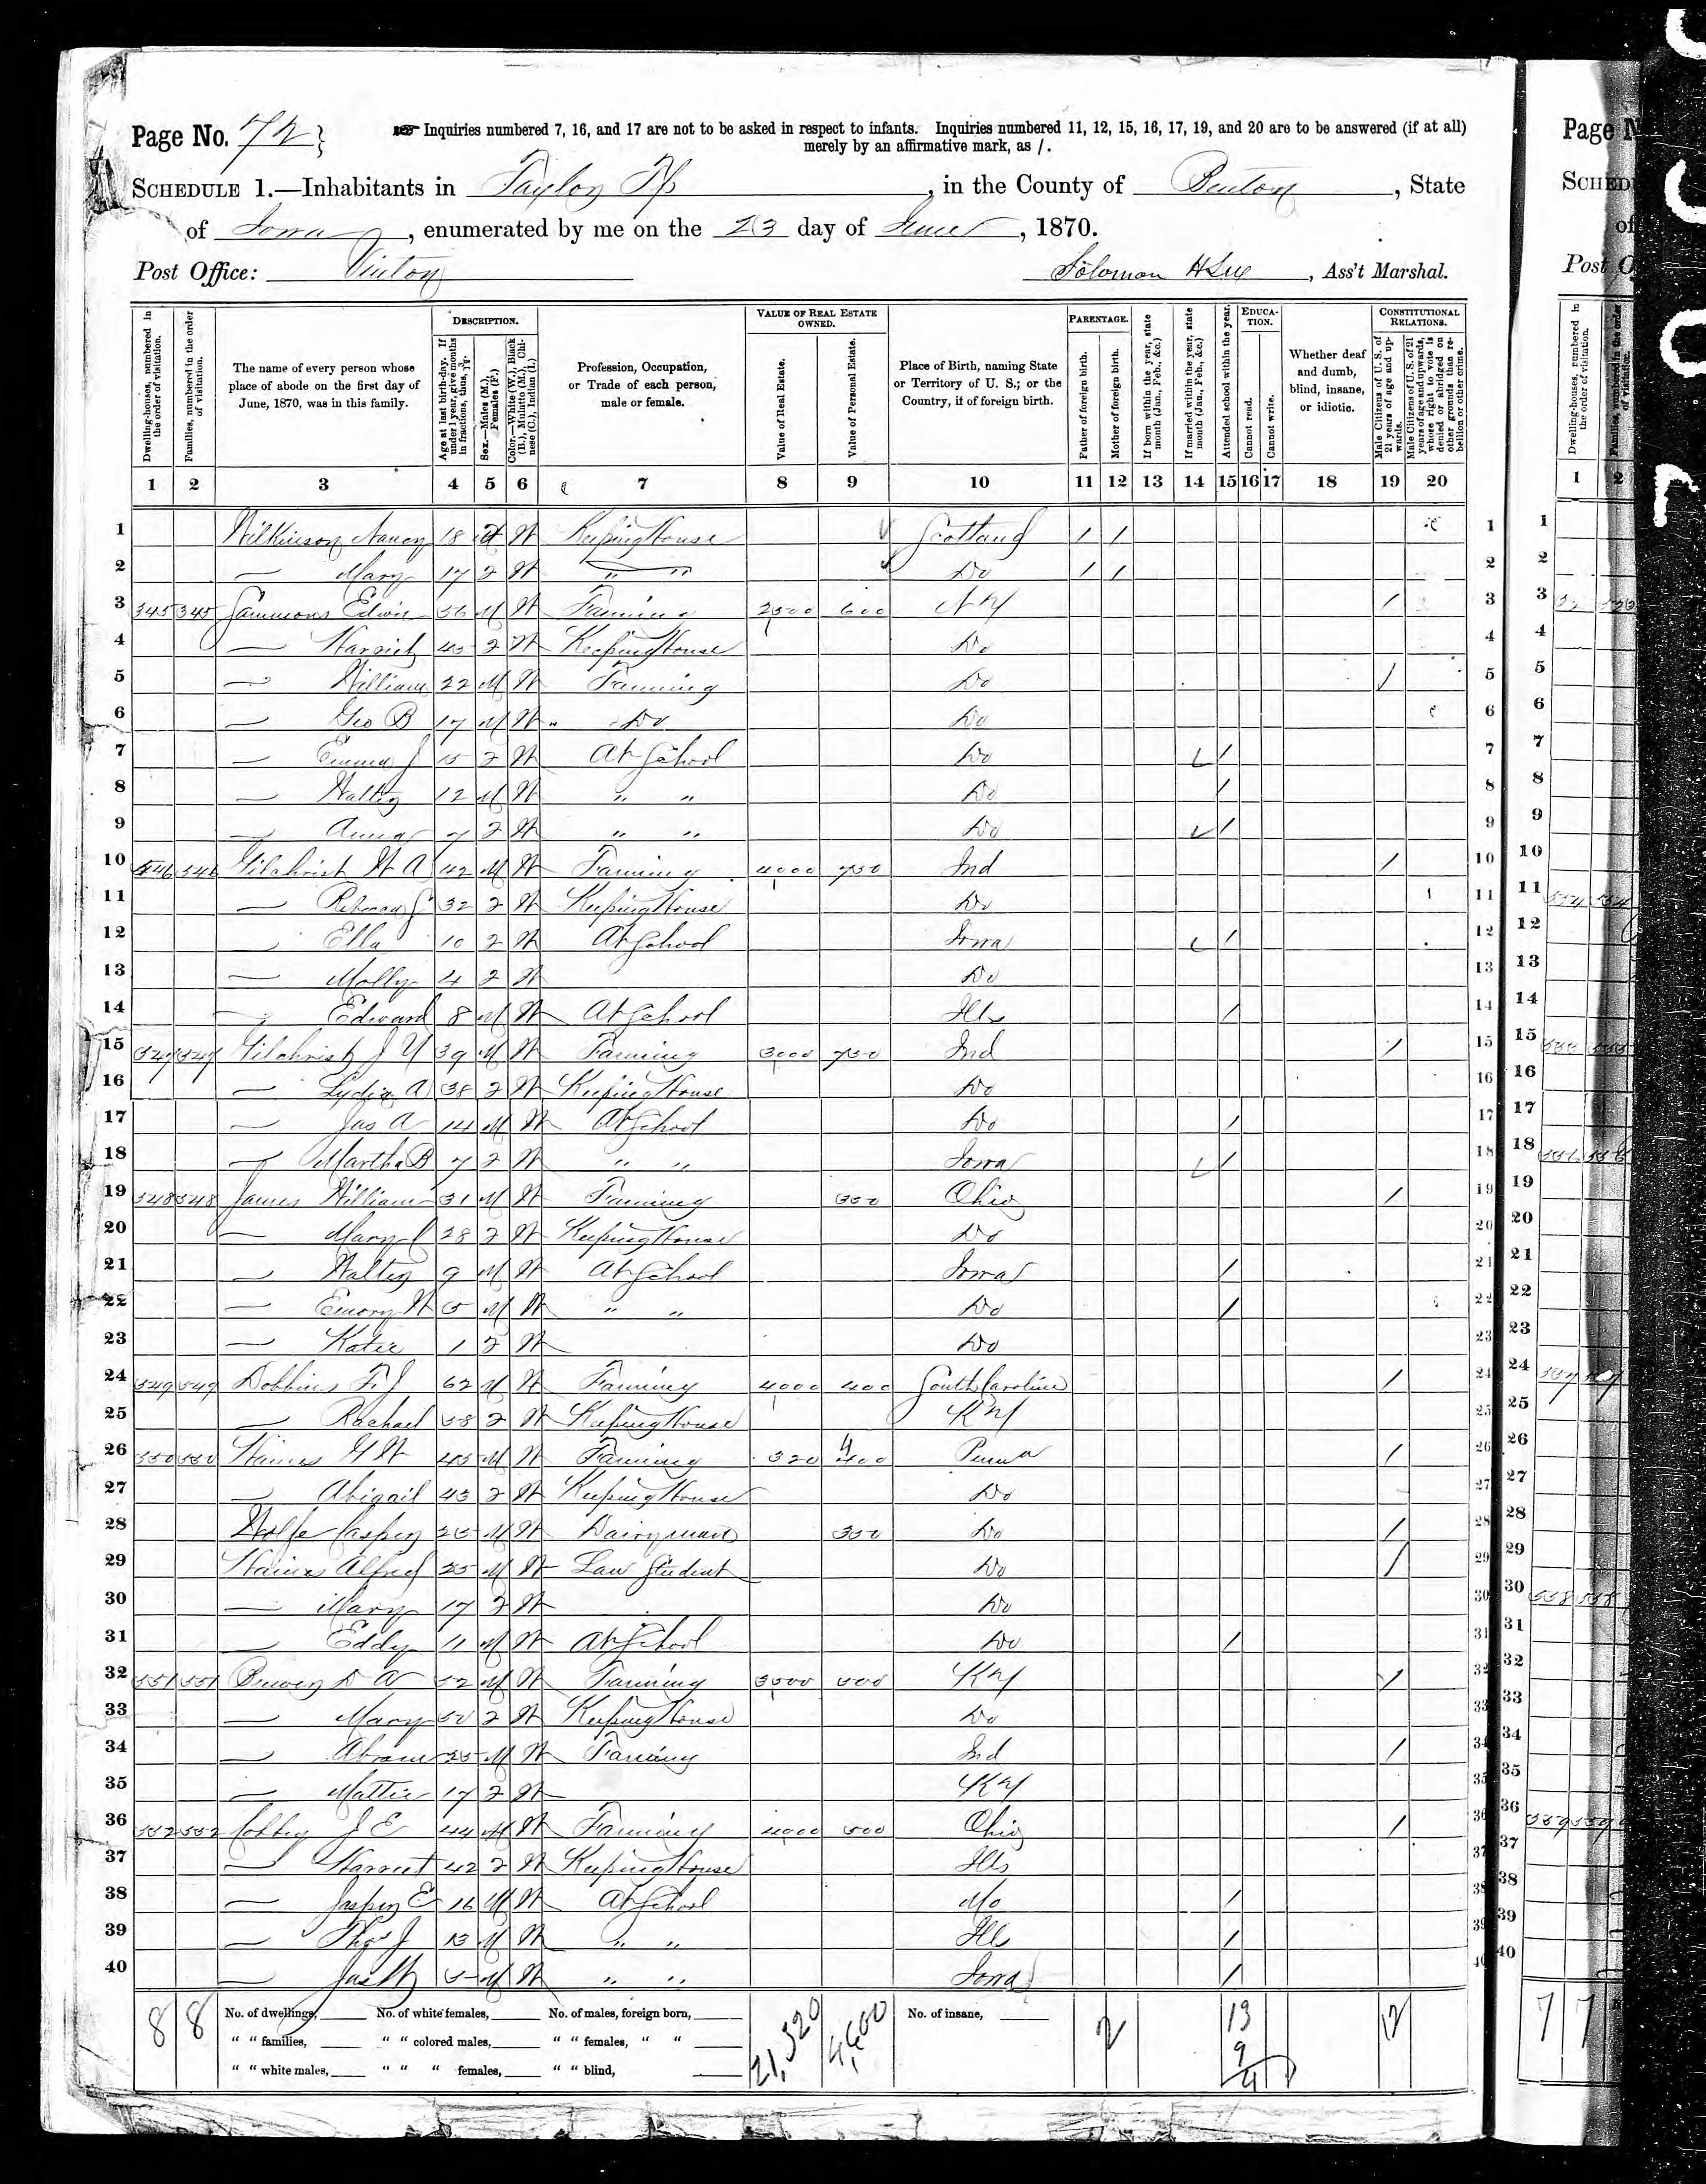 Page No. 72
Inquiries numbered 7, 16, and 17 are not to be asked in respect to infants. Inquiries numbered 11, 12, 15, 16, 17, 19, and 20 are to be answered (if at all)
merely by an affirmative mark, as /.
SCHEDULE 1.—Inhabitants in Taylor Tp, in the County of Benton, State
of Iowa, enumerated by me on the 23 day of June, 1870.
Post Office: Vinton
Solomon, Ass't Marshal.
Dwelling-houses, numbered in the order of visitation.
Families, numbered in the order of visitation.
The name of every person whose place of abode on the first day of June, 1870, was in this family.
DESCRIPTION.
Age at last birth-day. If under 1 year, give months in fractions, thus, 3/12.
Sex.—Males (M.), Females (F.)
Color.—White (W.), Black (B.), Mulatto (M.), Chinese (C.), Indian (I.)
Profession, Occupation, or Trade of each person, male or female.
VALUE OF REAL ESTATE OWNED.
Value of Real Estate.
Value of Personal Estate.
Place of Birth, naming State or Territory of U. S.; or the Country, if of foreign birth.
PARENTAGE.
Father of foreign birth.
Mother of foreign birth.
If born within the year, state month (Jan., Feb., &c.)
If married within the year, state month (Jan., Feb., &c.)
Attended school within the year.
EDUCATION.
Cannot read.
Cannot write.
Whether deaf and dumb, blind, insane, or idiotic.
CONSTITUTIONAL RELATIONS.
Male Citizens of U. S. of 21 years of age and upwards.
Male Citizens of U. S. of 21 years of age and upwards, whose right to vote is denied or abridged on other grounds than rebellion or other crime.
1 2 3 4 5 6 7 8 9 10 11 12 13 14 15 16 17 18 19 20
1 Wilkinson Nancy 18 W Keeping House Scotland / / 1
2 — Mary 17 F W " " Do / / 2
3 345 345 Sammons Edwin 56 M W Farming 2500 600 NY / 3
4 — Harriet 45 F W Keeping House Do 4
5 — William 22 M W Farming Do / 5
6 — Geo B 17 M W Do Do 6
7 — Emma J 15 F W At School Do / 7
8 — Walter 12 M W " " Do / 8
9 — Anna 7 F W " " Do / 9
10 546 546 Gilchrist W A 42 M W Farming 4000 750 Ind / 10
11 — Rebecca J 32 F W Keeping House Do 11
12 — Ella 10 F W At School Iowa / 12
13 — Molly 4 F W Do 13
14 — Edward 8 M W At School Ills / 14
15 547 547 Gilchrist J N 39 M W Farming 3000 750 Ind / 15
16 — Lydia A 38 F W Keeping House Do 16
17 — Jas A 14 M W At School Do / 17
18 — Martha B 7 F W " " Iowa / 18
19 548 548 James William 31 M W Farming 350 Ohio / 19
20 — Mary C 28 F W Keeping House Do 20
21 — Walter 9 M W At School Iowa / 21
22 — Emory W 5 M W " " Do / 22
23 — Katie 1 F W Do 23
24 549 549 Dobbins F J 62 M W Farming 4000 400 South Carolina / 24
25 — Rachael 58 F W Keeping House KY 25
26 550 550 Haines G W 45 M W Farming 320 400 Penna / 26
27 — Abigail 43 F W Keeping House Do 27
28 Wolfe Casper 25 M W Dairyman 350 Do / 28
29 Haines Alfred 25 M W Law Student Do / 29
30 — Mary 17 F W Do 30
31 — Eddy 11 M W At School Do / 31
32 551 551 D A 52 M W Farming 3500 500 KY / 32
33 — Mary 50 F W Keeping House Do 33
34 — Abram 25 M W Farming Ind / 34
35 — Mattie 17 F W KY 35
36 552 552 Cobbey J E 44 M W Farming 4000 500 Ohio / 36
37 — Harriet 42 F W Keeping House Ills 37
38 — Jasper E 16 M W At School Mo / 38
39 — Thos J 13 M W " " Ills / 39
40 — Jas W 5 M W " " Iowa / 40
8 8 No. of dwellings, No. of white females, No. of males, foreign born, 21,320 4,600 No. of insane, 2 13 12
" " families, " " colored males, " " females, " " 9
" " white males, " " " females, " " blind, 4